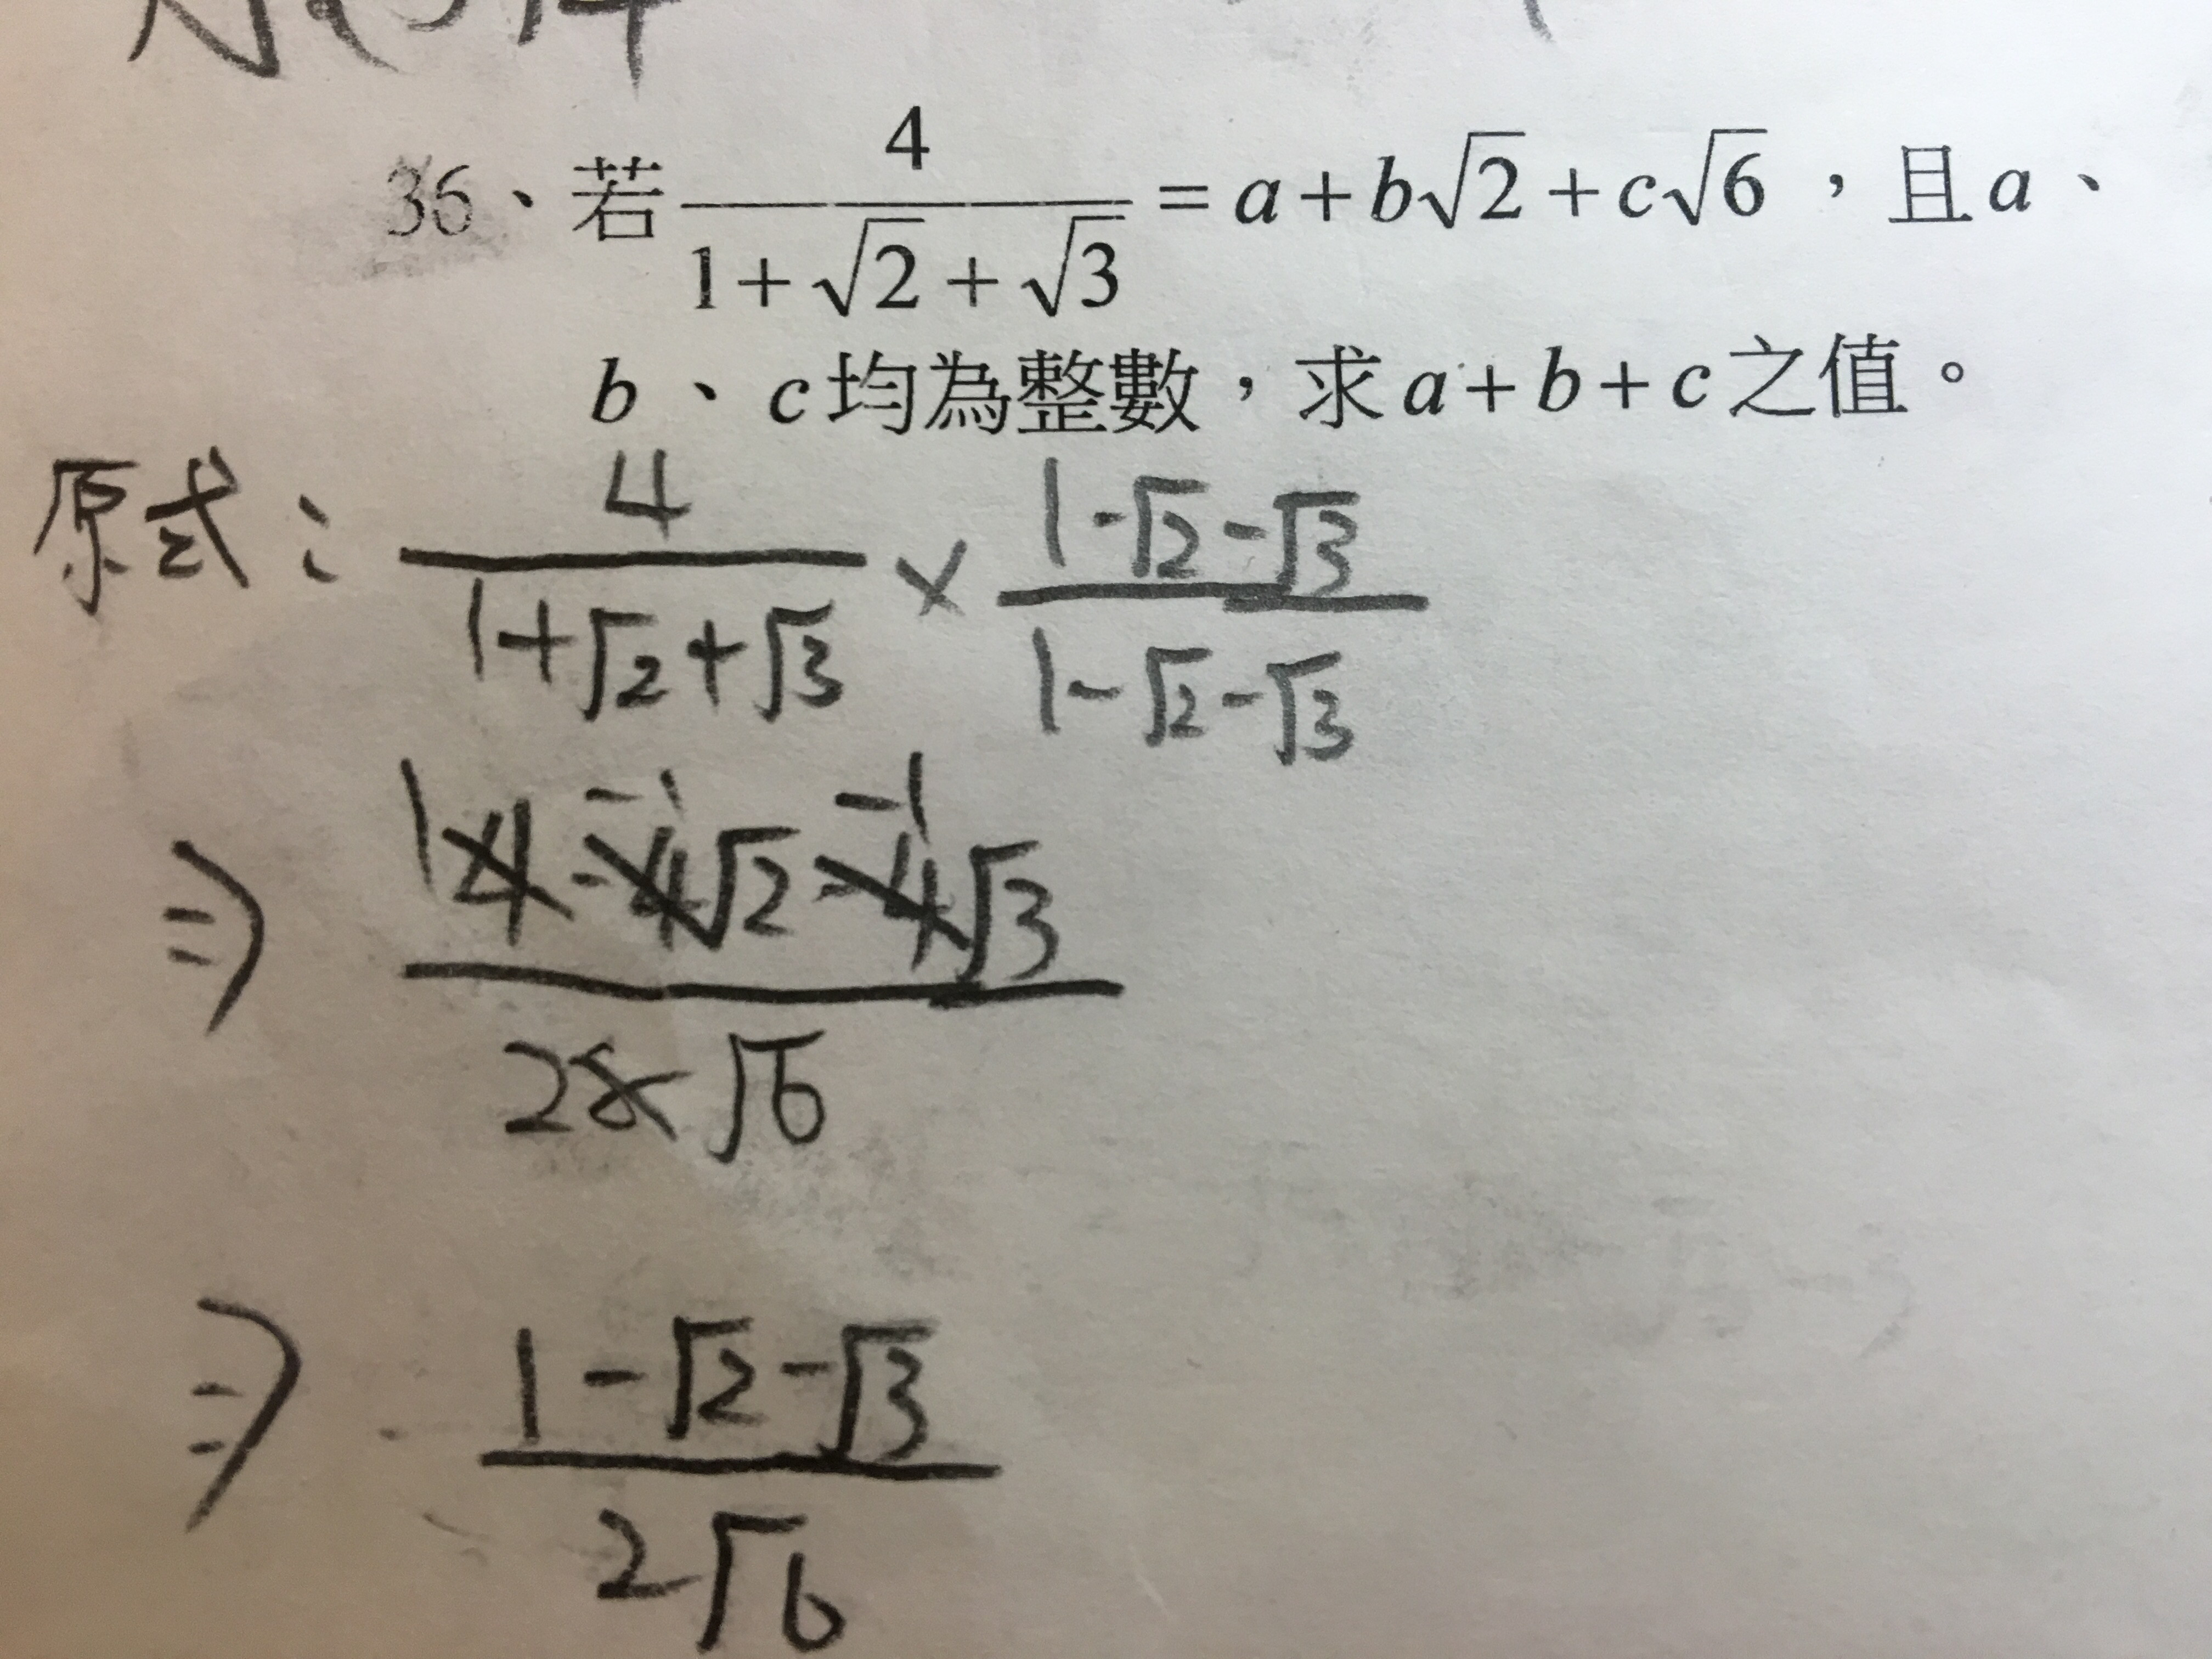 36、若 4/(1+√2+√3) = a+b√2+c√6 ，且a、
b 、c均為整數，求a+b+c之值。
原式： 4/(1+√2+√3) × (1-√2-√3)/(1-√2-√3)
⇒ 1 4 -4√2 -4√3 -1 -1 / 2 8 √6
⇒ (1-√2-√3)/(2√6)